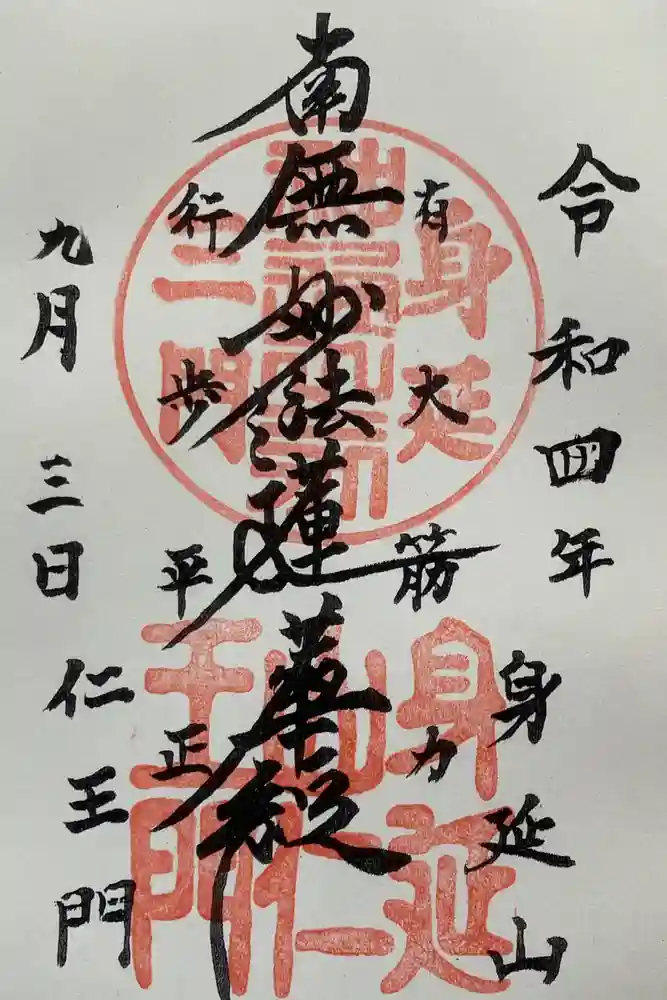 令和四年
身延山
有大筋力
南無妙法蓮華経
行歩平正
九月三日
仁王門
身延
三門
身延山仁王門